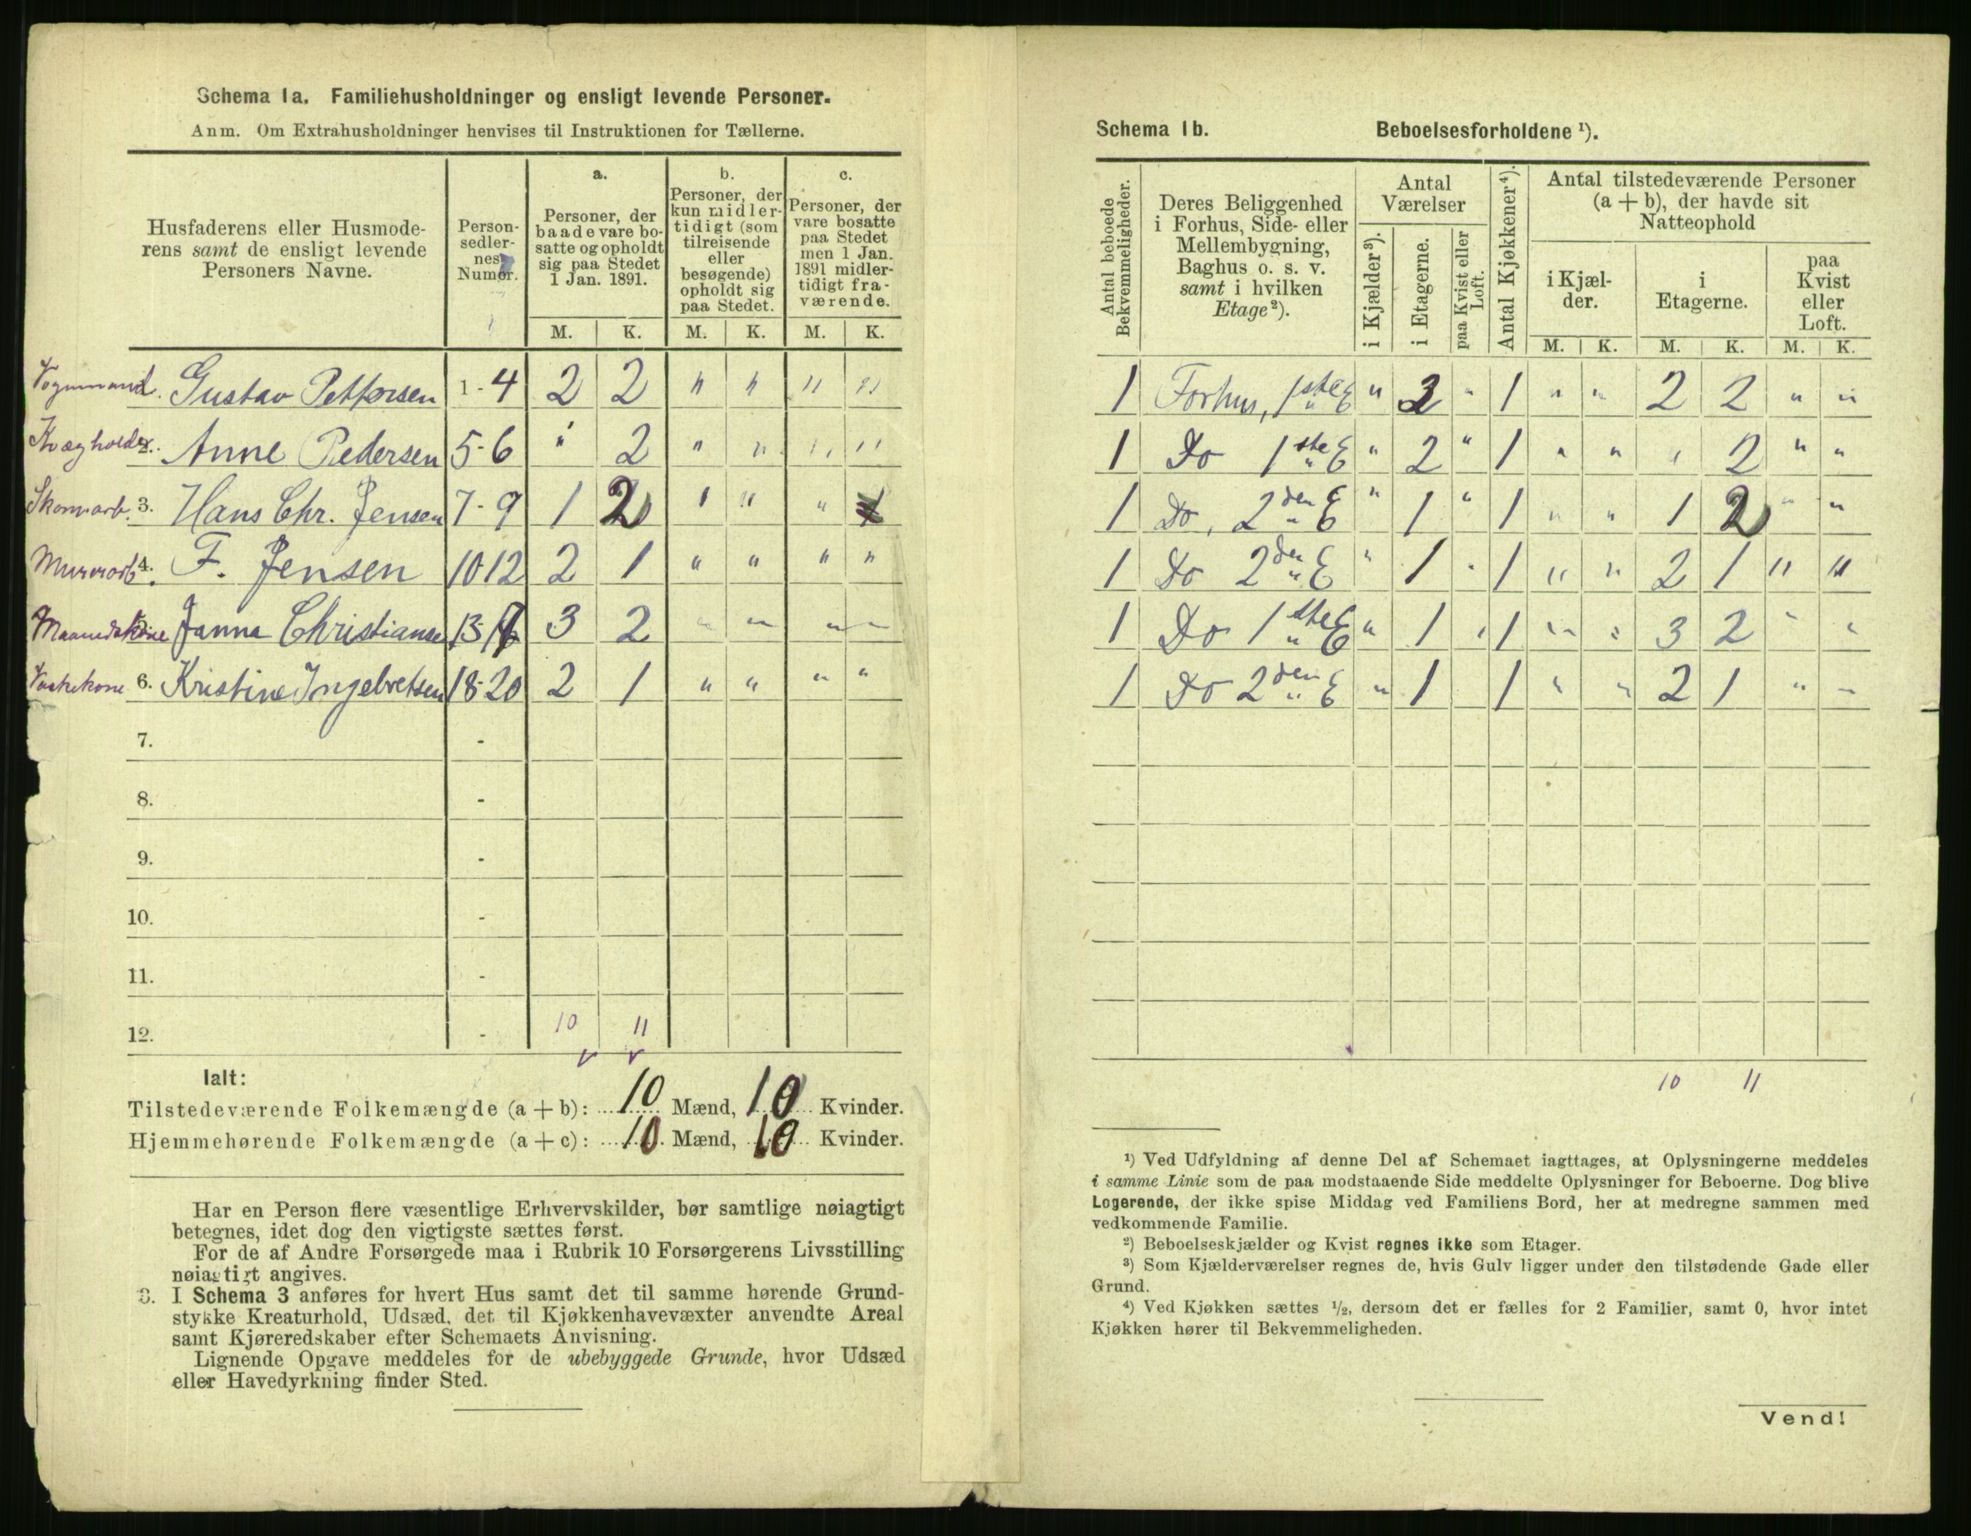 Schema 1a. Familiehusholdninger og ensligt levende Personer.
Anm. Om Extrahusholdninger henvises til Instruktionen for Tællerne.
Husfaderens eller Husmoderens samt de ensligt levende Personers Navne.
Person-sedlernes Numer.
a. Personer, der baade vare bosatte og opholdt sig paa Stedet 1 Jan. 1891.
b. Personer, der kun midlertidigt (som tilreisende eller besøgende) opholdt sig paa Stedet.
c. Personer, der vare bosatte paa Stedet men 1 Jan. 1891 midlertidigt fraværende.
M. K. M. K. M. K.
Vognmand. Gustav Pettersen 1-4 2 2 " " " "
Kvægholder 2. Anne Pedersen 5-6 " 2 " " " "
Skomarb. 3. Hans Chr. Jensen 7-9 1 2 " " "
Murerarb. 4. F. Jensen 10 12 2 1 " " " "
Maanedskone Janna Christianse 13-17 3 2 " " " "
Vaskekone 6. Kristine Ingebretsen 18-20 2 1 " " " "
7. -
8. -
9. -
10. -
11. -
12. - 10 11
Ialt:
Tilstedeværende Folkemængde (a + b): 10 Mænd, 10 Kvinder.
Hjemmehørende Folkemængde (a + c): 10 Mænd, 10 Kvinder.
Har en Person flere væsentlige Erhvervskilder, bør samtlige nøiagtigt
betegnes, idet dog den vigtigste sættes først.
For de af Andre Forsørgede maa i Rubrik 10 Forsørgerens Livsstilling
nøiagtigt angives.
3. I Schema 3 anføres for hvert Hus samt det til samme hørende Grund-
stykke Kreaturhold, Udsæd, det til Kjøkkenhavevæxter anvendte Areal
samt Kjøreredskaber efter Schemaets Anvisning.
Lignende Opgave meddeles for de ubebyggede Grunde, hvor Udsæd
eller Havedyrkning finder Sted.
Schema 1b. Beboelsesforholdene ¹).
Antal beboede Bekvemmeligheder.
Deres Beliggenhed i Forhus, Side- eller Mellembygning, Baghus o. s. v. samt i hvilken Etage ²).
Antal Værelser
i Kjælder ³).
i Etagerne.
paa Kvist eller Loft.
Antal Kjøkkener ⁴).
Antal tilstedeværende Personer (a + b), der havde sit Natteophold
i Kjælder.
i Etagerne.
paa Kvist eller Loft.
M. K. M. K. M. K.
1 Forhus, 1ste E " 3 " 1 " " 2 2 " "
1 Do 1ste E " 2 " 1 " " " 2 " "
1 Do, 2den E " 1 " 1 " " 1 2 " "
1 Do 2den E " 1 " 1 " " 2 1 " "
1 Do 1ste E " 1 " 1 " " 3 2 " "
1 Do 2den E " 1 1 " " 2 1 " "
10 11
¹) Ved Udfyldning af denne Del af Schemaet iagttages, at Oplysningerne meddeles
i samme Linie som de paa modstaaende Side meddelte Oplysninger for Beboerne. Dog blive
Logerende, der ikke spise Middag ved Familiens Bord, her at medregne sammen med
vedkommende Familie.
²) Beboelseskjælder og Kvist regnes ikke som Etager.
³) Som Kjælderværelser regnes de, hvis Gulv ligger under den tilstødende Gade eller
Grund.
⁴) Ved Kjøkken sættes ½, dersom det er fælles for 2 Familier, samt 0, hvor intet
Kjøkken hører til Bekvemmeligheden.
Vend!